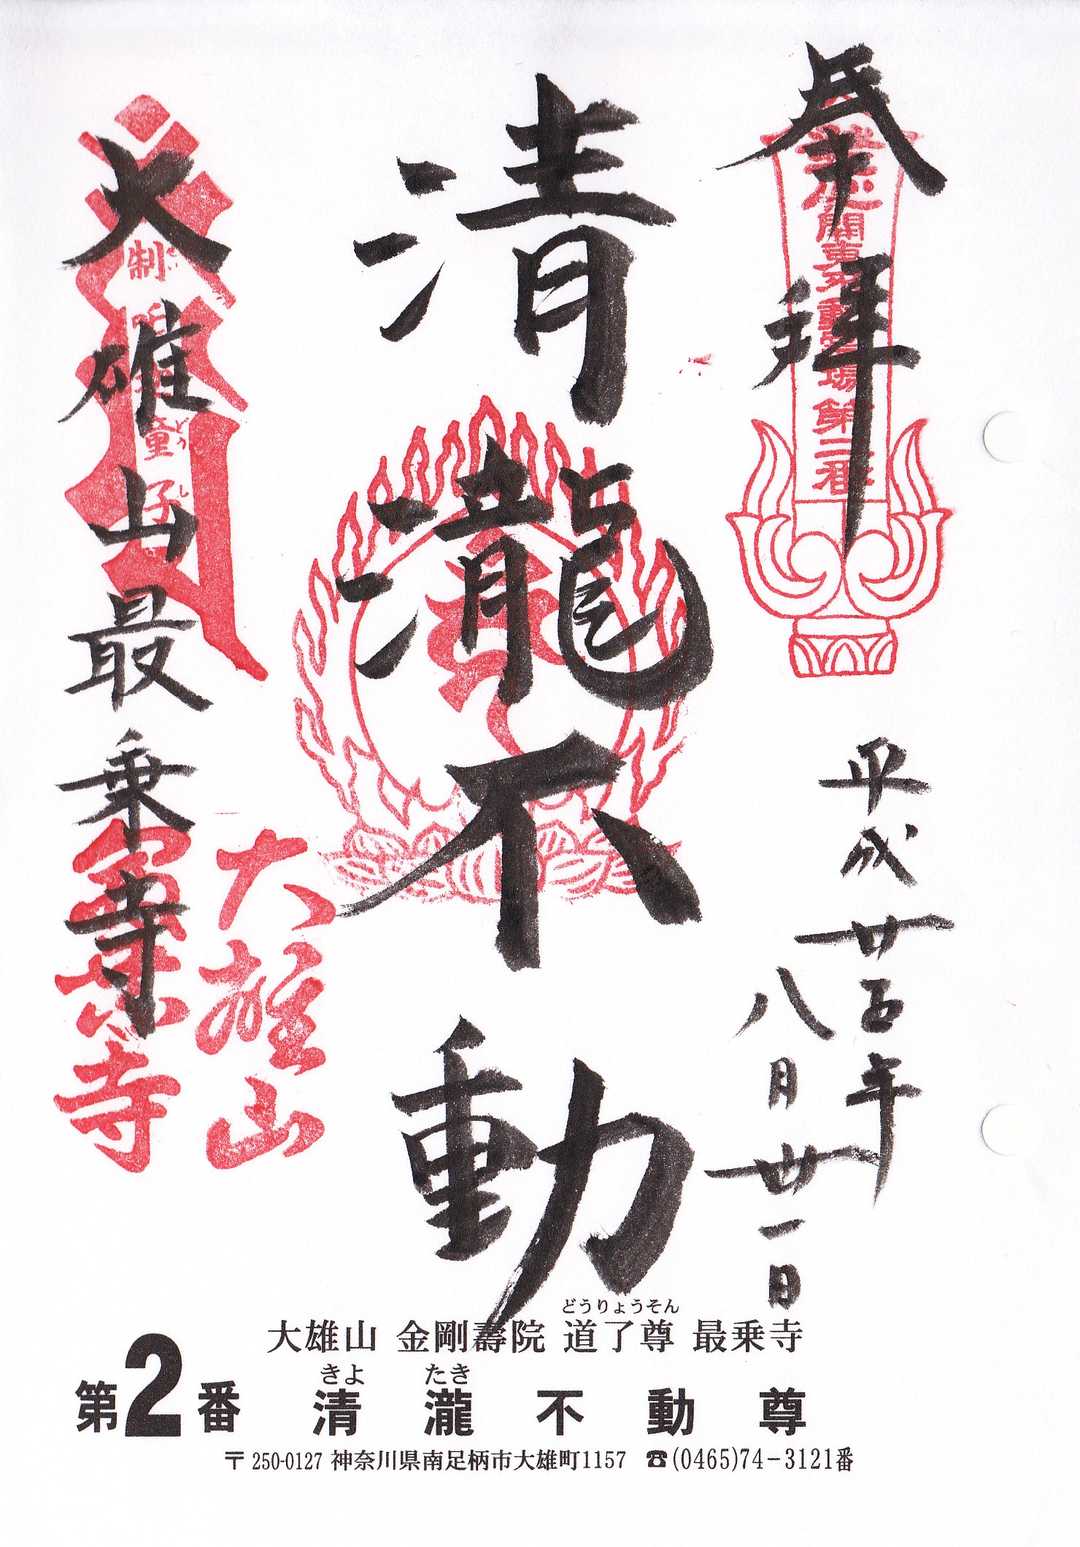 奉拝
關東不動霊場第二番
平成廿五年
八月廿一日
清瀧不動
大雄山最乗寺
制
童子
どうじ
大雄山
寺
どうりょうそん
大雄山 金剛壽院 道了尊 最乗寺
きよ たき
第2番 清瀧不動尊
〒250-0127 神奈川県南足柄市大雄町1157 ☎(0465)74-3121番